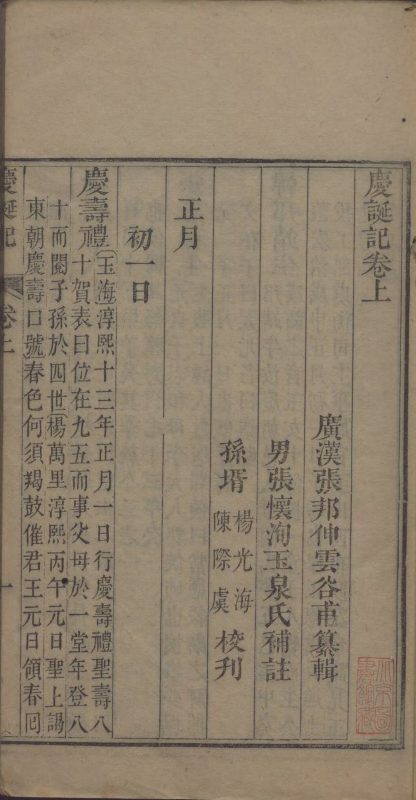 慶誕記卷上
廣漢張邦伸雲谷甫纂輯
男張懷洵玉泉氏補註
孫壻楊光海陳際虞校刊
正月
初一日
慶壽禮玉海淳熙十三年正月一日行慶壽禮聖壽八
十賀表曰位在九五而事父母於一堂年登八
十而閱子孫於四世楊萬里淳熙丙午元日聖上詣
東朝慶壽口號春色何須羯鼓催君王元日領春囘
慶誕記 卷上 一